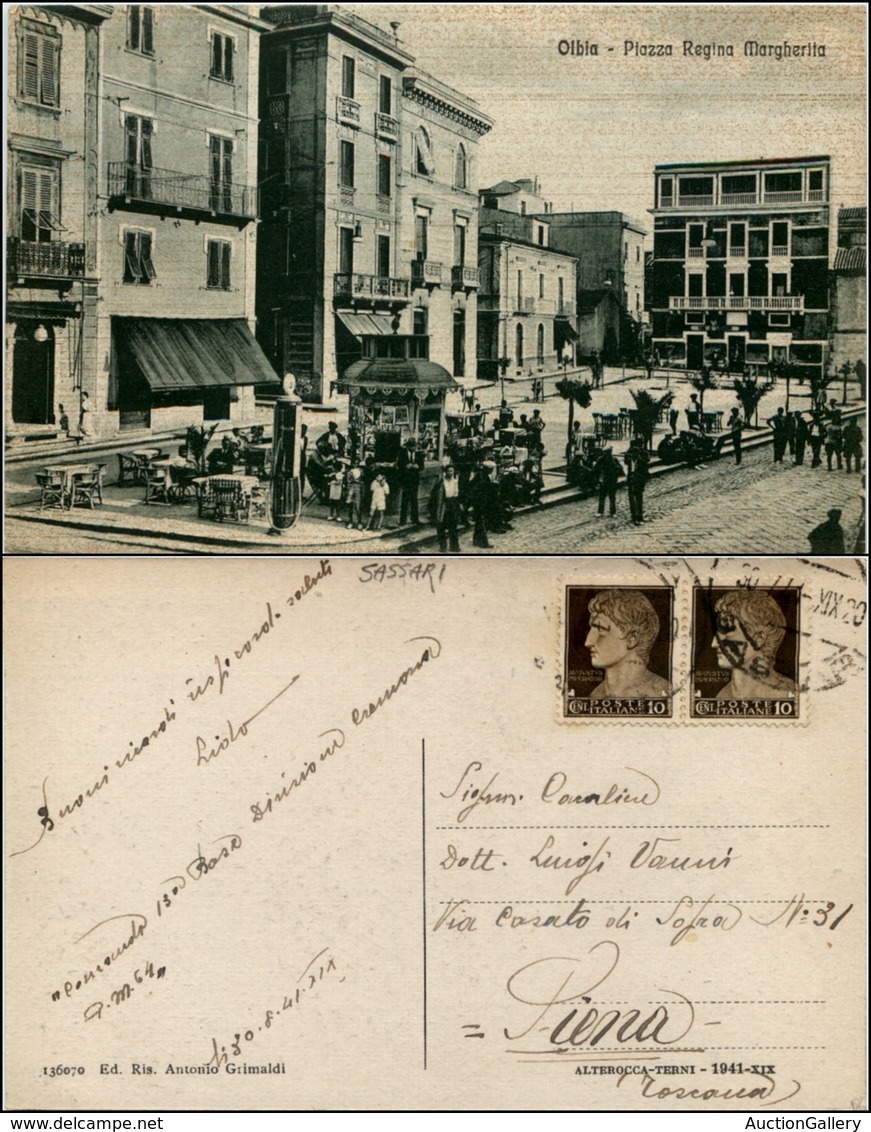 Olbia - Piazza Regina Margherita
SASSARI
Buoni ricordi
saluti
Lido
"Comando 13ª Base Divisione Cremona
P.M. 64"
30.8.41.XIX
136070 Ed. Ris. Antonio Grimaldi
AVGVSTVS
IMPERATOR
CENT. POSTE ITALIANE 10
AVGVSTVS
IMPERATOR
CENT. POSTE ITALIANE 10
Signor Cavaliere
Dott. Luigi Vanni
Via Casato di Sopra N: 31
= Siena -
ALTEROCCA-TERNI - 1941-XIX
Toscana
AuctionGallery